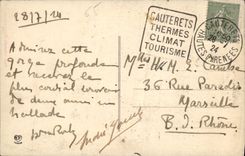 28/7/24
CAUTERETS
THERMES
CLIMAT
TOURISME
CAUTERETS
24
HAUTES PYRENEES
Admirez cette
gorge profonde
et recevez le
plus cordial souvenir
de deux amis en
ballade
Mlles H & M. L.
36 Rue Paradis
Marseille
B. d. Rhône